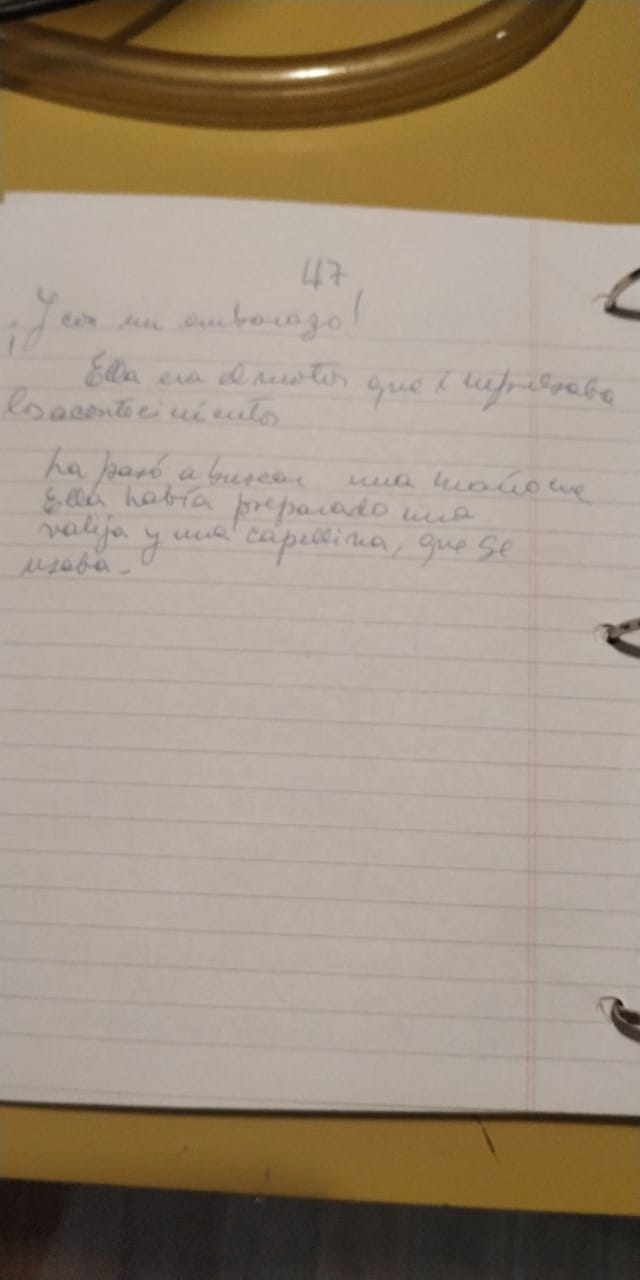 47
¡Y con un embarazo!
Ella era el motor que impulsaba
los acontecimientos
La pasó a buscar una mañana
Ella había preparado una
valija y una capellina, que se
usaba.